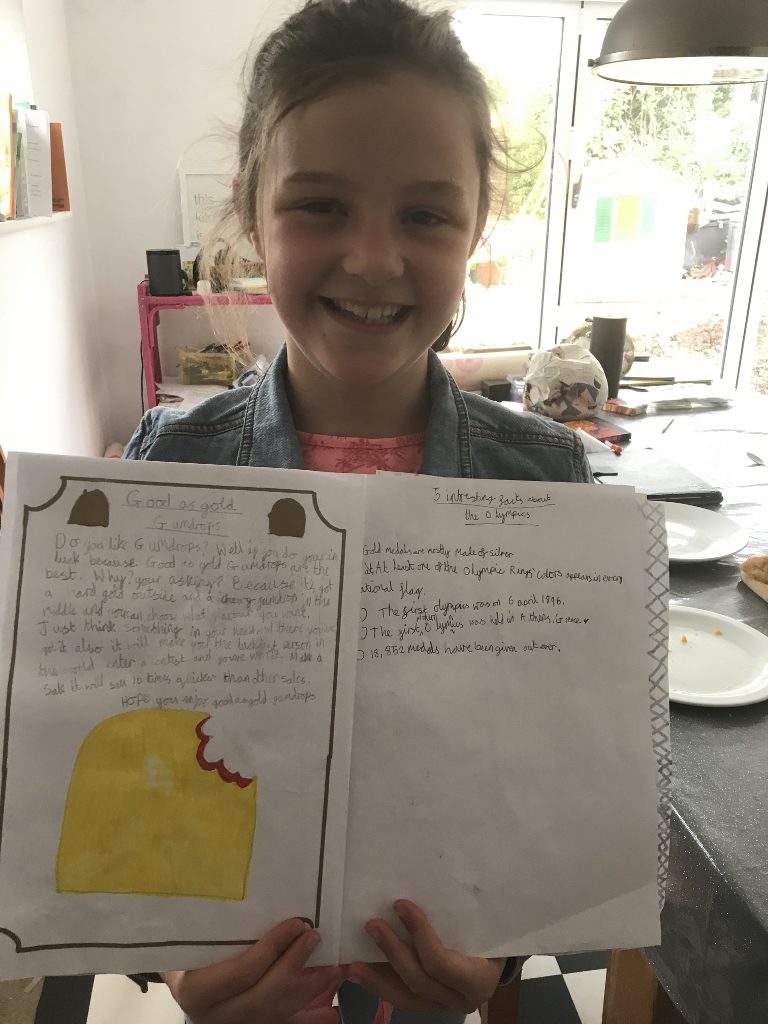 this
Good as gold
Gumdrops
Do you like Gumdrops? Well if you do your in
luck because Good as gold Gumdrops are the
best. Why? your asking? Because it's got
a and gold outside and a chewy gumdrop in the
middle and you can choose what flavour you want.
Just think something in your head and there you've
got it also it will make you the luckiest person in
the world enter a contest and you've won it. Make a
Sale it will sell 10 times quicker than other sales.
HOPE your enjoy good as gold gumdrops
5 intresting facts about
the Olympics
Gold medals are mostly Made of silver
At least one of the Olympic Rings' colors appears in every
national flag.
The first olympics was on 6 april 1896.
The first, Olympics was held in Athens, Greece
18,852 medals have been given out ever.